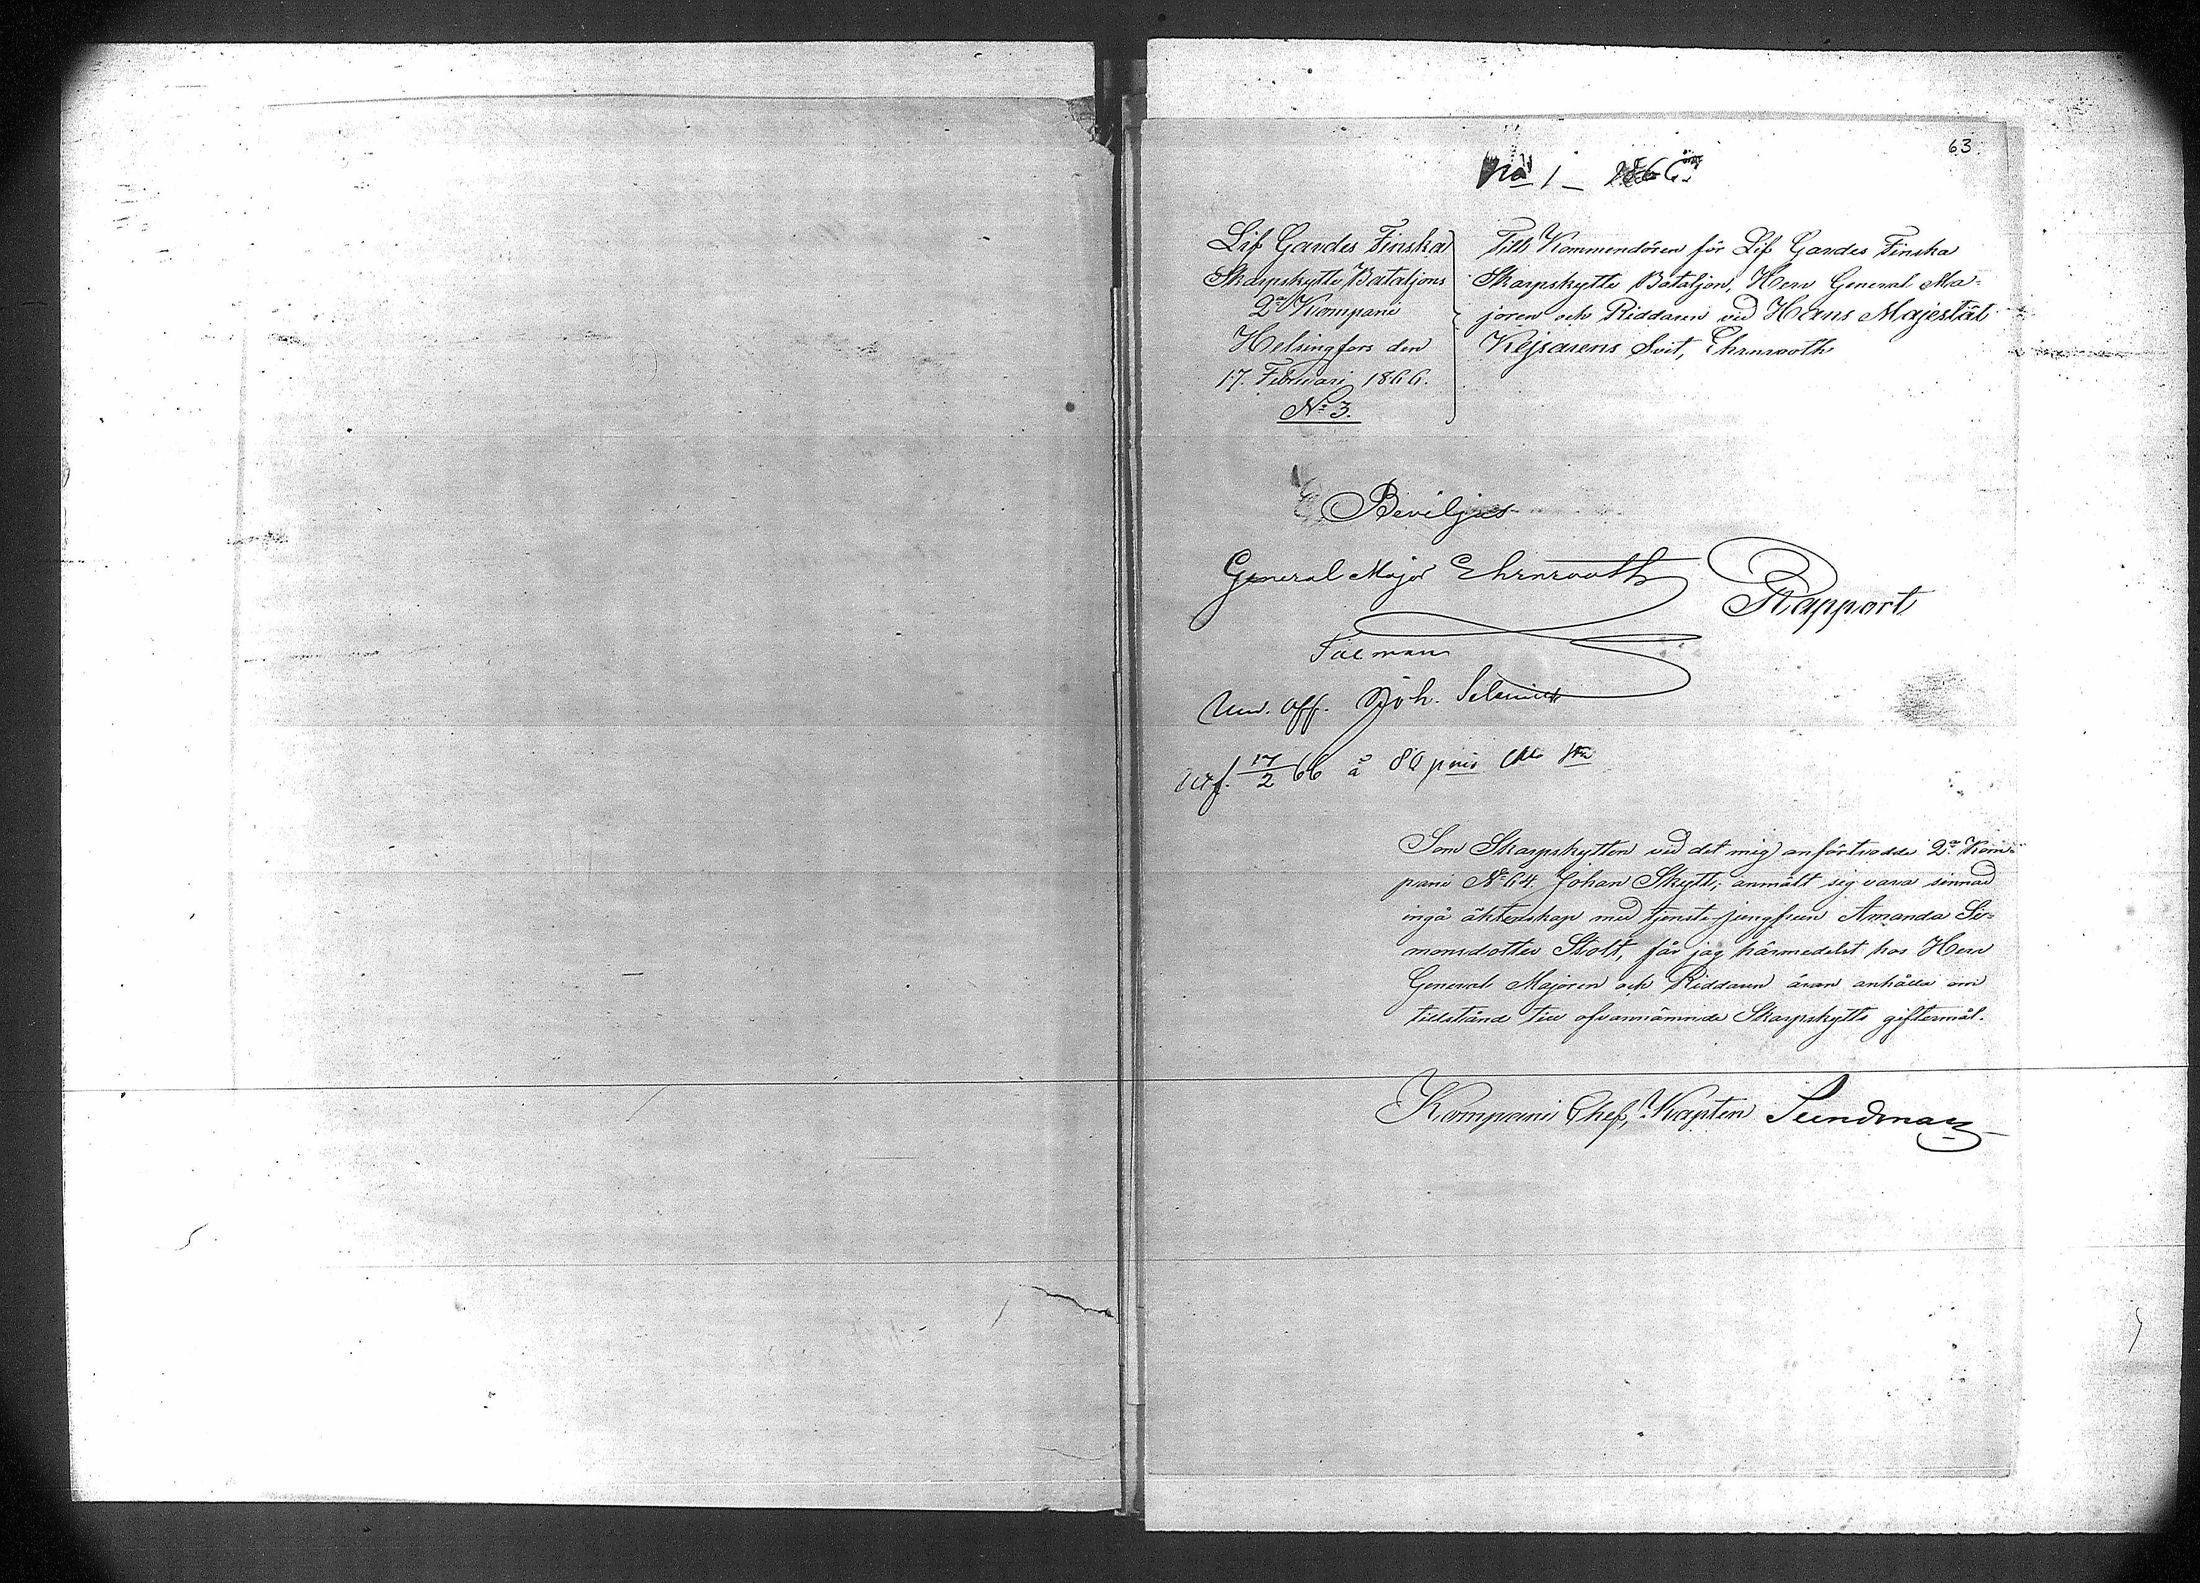 63.
No 1 – 1866
Lif Gardes Finska
Skarpskytte Bataljons
2a Kompani
Helsingfors den
17. Februari 1866.
No 3.
Till Kommendören för Lif Gardes Finska
Skarpskytte Bataljon, Herr General Ma-
joren och Riddaren ved Hans Majestät
Kejsarens Svit, Ehrnrooth
Beviljas
General Major Ehrnrooth
Rapport
Taeman
Und. Off. Joh.
Utf. 17/2 66 à 80
Som Skarpskytten ved det mig anförtrodde 2a Kom-
pani No 64. Johan Skytt, anmält sig vara sinnad
ingå äktenskap med tjenstejungfrun Amanda Si-
monsdotter Stolt, får jag härmedelst hos Herr
General Majoren och Riddaren äran anhålla om
tillstånd till ofvannämnde Skarpskytts giftermål.
Kompani Chef, Kapten Sundman